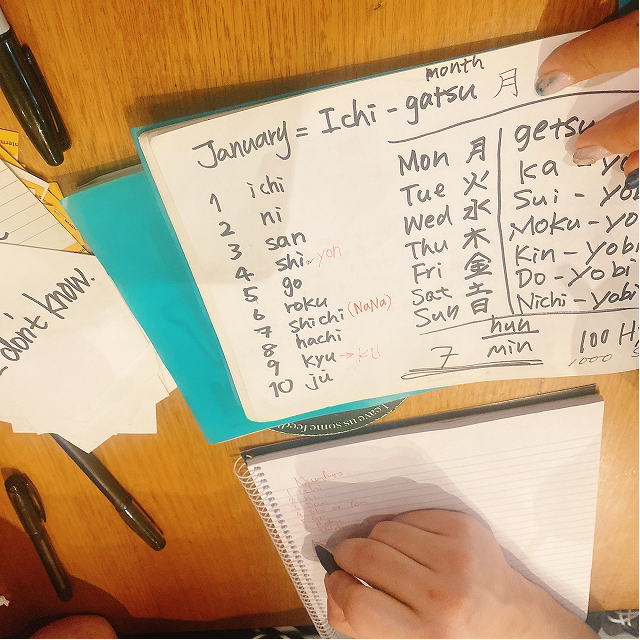 month
January = Ichi - gatsu 月
1 ichi
2 ni
3 san
4 shi yon
5 go
6 roku
7 shichi (NaNa)
8 hachi
9 kyu → ku
10 jū
Mon 月 getsu
Tue 火 ka - yo
Wed 水 Sui - yob
Thu 木 Moku - yo
Fri 金 Kin - yobi
Sat 土 Do - yobi
Sun 日 Nichi - yobi
hun
7 min
100 H
1000
I don't know.
Leave us some feed